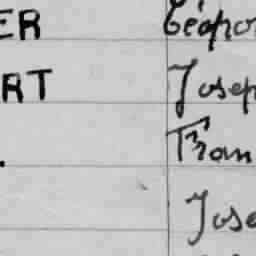 ER Léopo
RT Josep
Fran
Jose